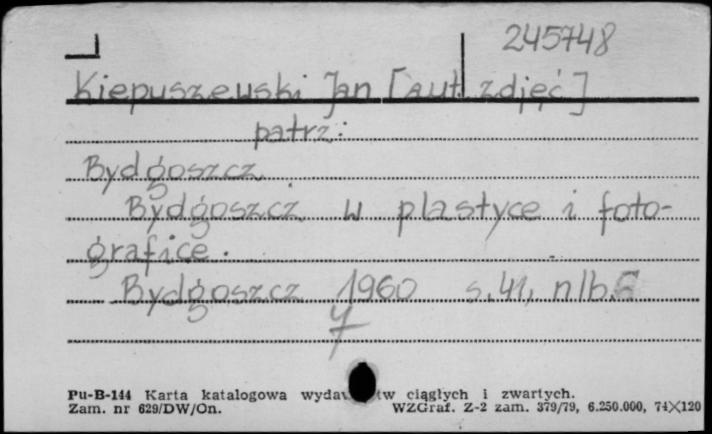 245748
Kiepuszewski Jan [aut. zdjęć]
patrz:
Bydgoszcz
Bydgoszcz w plastyce i foto-
grafice.
Bydgoszcz 1960 s. 41, nlb.
Pu-B-144 Karta katalogowa ciągłych i zwartych.
Zam. nr 629/DW/On. WZGraf. Z-2 zam. 379/79, 6.250.000, 74X120